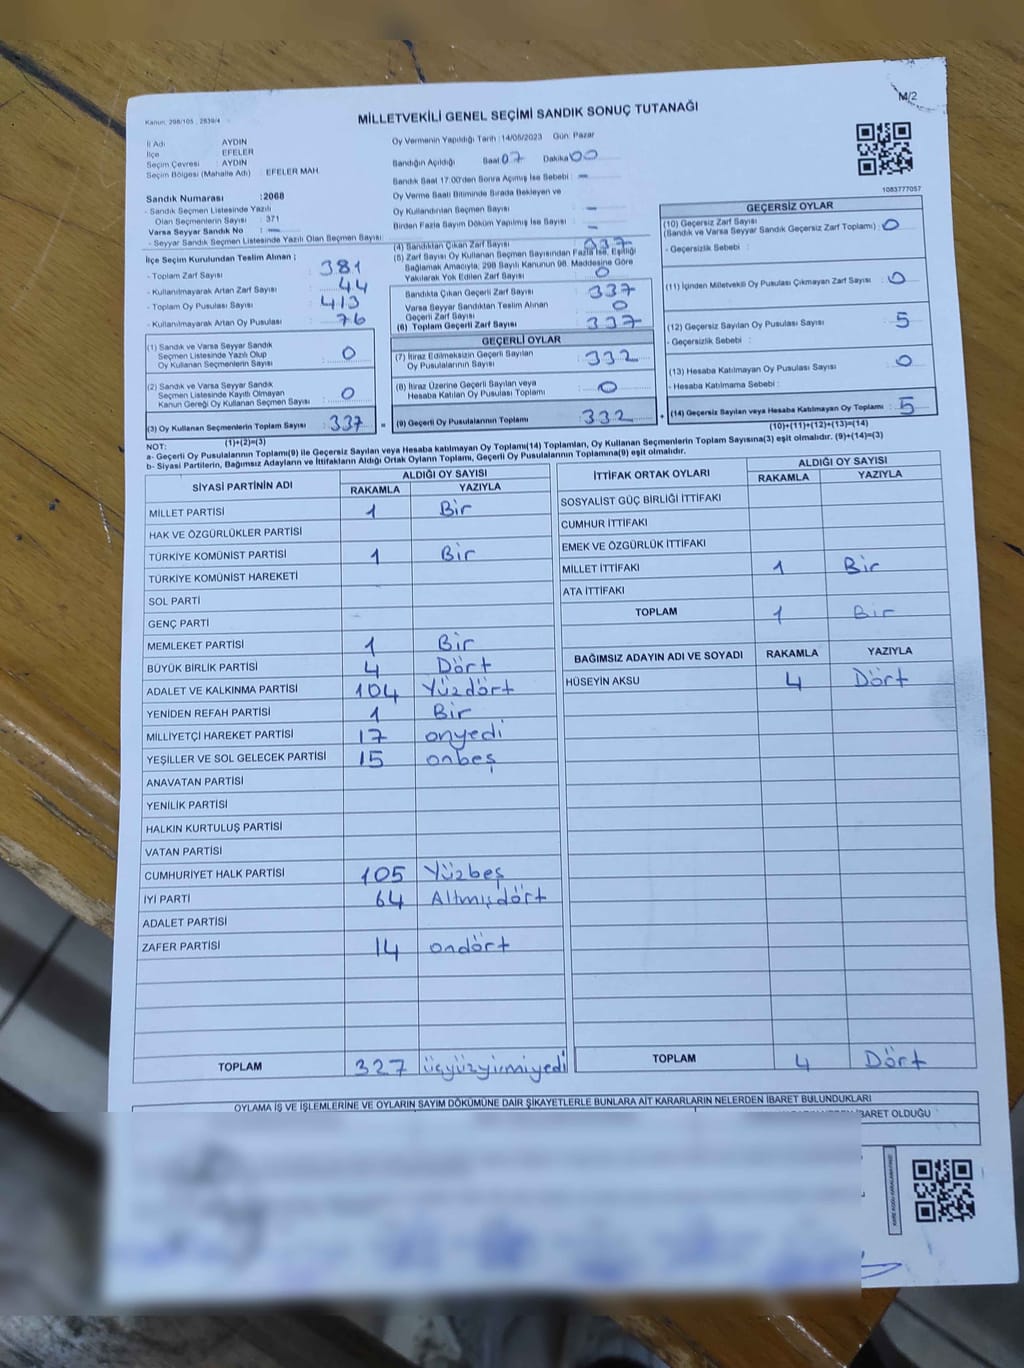 M/2
Kanun: 298/105 , 2839/4
MİLLETVEKİLİ GENEL SEÇİMİ SANDIK SONUÇ TUTANAĞI
İl Adı AYDIN
İlçe EFELER
Seçim Çevresi : AYDIN
Seçim Bölgesi (Mahalle Adı) : EFELER MAH.
Sandık Numarası :2068
- Sandık Seçmen Listesinde Yazılı
Olan Seçmenlerin Sayısı : 371
Varsa Seyyar Sandık No : —
- Seyyar Sandık Seçmen Listesinde Yazılı Olan Seçmen Sayısı:
Oy Vermenin Yapıldığı Tarih : 14/05/2023 Gün: Pazar
Sandığın Açıldığı Saat 07 Dakika 00
Sandık Saat 17:00'den Sonra Açılmış İse Sebebi : —
Oy Verme Saati Bitiminde Sırada Bekleyen ve
Oy Kullandırılan Seçmen Sayısı : —
Birden Fazla Sayım Döküm Yapılmış İse Sayısı : —
1083777057
İlçe Seçim Kurulundan Teslim Alınan ;
- Toplam Zarf Sayısı : 381
- Kullanılmayarak Artan Zarf Sayısı : 44
- Toplam Oy Pusulası Sayısı : 413
- Kullanılmayarak Artan Oy Pusulası : 76
(1) Sandık ve Varsa Seyyar Sandık
Seçmen Listesinde Yazılı Olup
Oy Kullanan Seçmenlerin Sayısı : 0
(2) Sandık ve Varsa Seyyar Sandık
Seçmen Listesinde Kayıtlı Olmayan
Kanun Gereği Oy Kullanan Seçmen Sayısı : 0
(3) Oy Kullanan Seçmenlerin Toplam Sayısı : 337
(1)+(2)=(3)
(4) Sandıktan Çıkan Zarf Sayısı : 337
(5) Zarf Sayısı Oy Kullanan Seçmen Sayısından Fazla İse, Eşitliği
Sağlamak Amacıyla, 298 Sayılı Kanunun 98. Maddesine Göre
Yakılarak Yok Edilen Zarf Sayısı : 0
Sandıkta Çıkan Geçerli Zarf Sayısı : 337
Varsa Seyyar Sandıktan Teslim Alınan
Geçerli Zarf Sayısı : 0
(6) Toplam Geçerli Zarf Sayısı : 337
GEÇERLİ OYLAR
(7) İtiraz Edilmeksizin Geçerli Sayılan
Oy Pusulalarının Sayısı : 332
(8) İtiraz Üzerine Geçerli Sayılan veya
Hesaba Katılan Oy Pusulası Toplamı : 0
= (9) Geçerli Oy Pusulalarının Toplamı : 332 +
GEÇERSİZ OYLAR
(10) Geçersiz Zarf Sayısı
(Sandık ve Varsa Seyyar Sandık Geçersiz Zarf Toplamı) : 0
- Geçersizlik Sebebi :
(11) İçinden Milletvekili Oy Pusulası Çıkmayan Zarf Sayısı : 0
(12) Geçersiz Sayılan Oy Pusulası Sayısı : 5
- Geçersizlik Sebebi :
(13) Hesaba Katılmayan Oy Pusulası Sayısı : 0
- Hesaba Katılmama Sebebi :
(14) Geçersiz Sayılan veya Hesaba Katılmayan Oy Toplamı : 5
(10)+(11)+(12)+(13)=(14)
NOT:
a- Geçerli Oy Pusulalarının Toplamı(9) ile Geçersiz Sayılan veya Hesaba katılmayan Oy Toplamı(14) Toplamları, Oy Kullanan Seçmenlerin Toplam Sayısına(3) eşit olmalıdır. (9)+(14)=(3)
b- Siyasi Partilerin, Bağımsız Adayların ve İttifakların Aldığı Ortak Oyların Toplamı, Geçerli Oy Pusulalarının Toplamına(9) eşit olmalıdır.
SİYASİ PARTİNİN ADI ALDIĞI OY SAYISI
RAKAMLA YAZIYLA
MİLLET PARTİSİ 1 Bir
HAK VE ÖZGÜRLÜKLER PARTİSİ
TÜRKİYE KOMÜNİST PARTİSİ 1 Bir
TÜRKİYE KOMÜNİST HAREKETİ
SOL PARTİ
GENÇ PARTİ
MEMLEKET PARTİSİ 1 Bir
BÜYÜK BİRLİK PARTİSİ 4 Dört
ADALET VE KALKINMA PARTİSİ 104 Yüzdört
YENİDEN REFAH PARTİSİ 1 Bir
MİLLİYETÇİ HAREKET PARTİSİ 17 onyedi
YEŞİLLER VE SOL GELECEK PARTİSİ 15 onbeş
ANAVATAN PARTİSİ
YENİLİK PARTİSİ
HALKIN KURTULUŞ PARTİSİ
VATAN PARTİSİ
CUMHURİYET HALK PARTİSİ 105 Yüzbeş
İYİ PARTİ 64 Altmışdört
ADALET PARTİSİ
ZAFER PARTİSİ 14 ondört
TOPLAM 327 üçyüzyirmiyedi
İTTİFAK ORTAK OYLARI ALDIĞI OY SAYISI
RAKAMLA YAZIYLA
SOSYALİST GÜÇ BİRLİĞİ İTTİFAKI
CUMHUR İTTİFAKI
EMEK VE ÖZGÜRLÜK İTTİFAKI
MİLLET İTTİFAKI 1 Bir
ATA İTTİFAKI
TOPLAM 1 Bir
BAĞIMSIZ ADAYIN ADI VE SOYADI RAKAMLA YAZIYLA
HÜSEYİN AKSU 4 Dört
TOPLAM 4 Dört
OYLAMA İŞ VE İŞLEMLERİNE VE OYLARIN SAYIM DÖKÜMÜNE DAİR ŞİKAYETLERLE BUNLARA AİT KARARLARIN NELERDEN İBARET BULUNDUKLARI
İBARET OLDUĞU